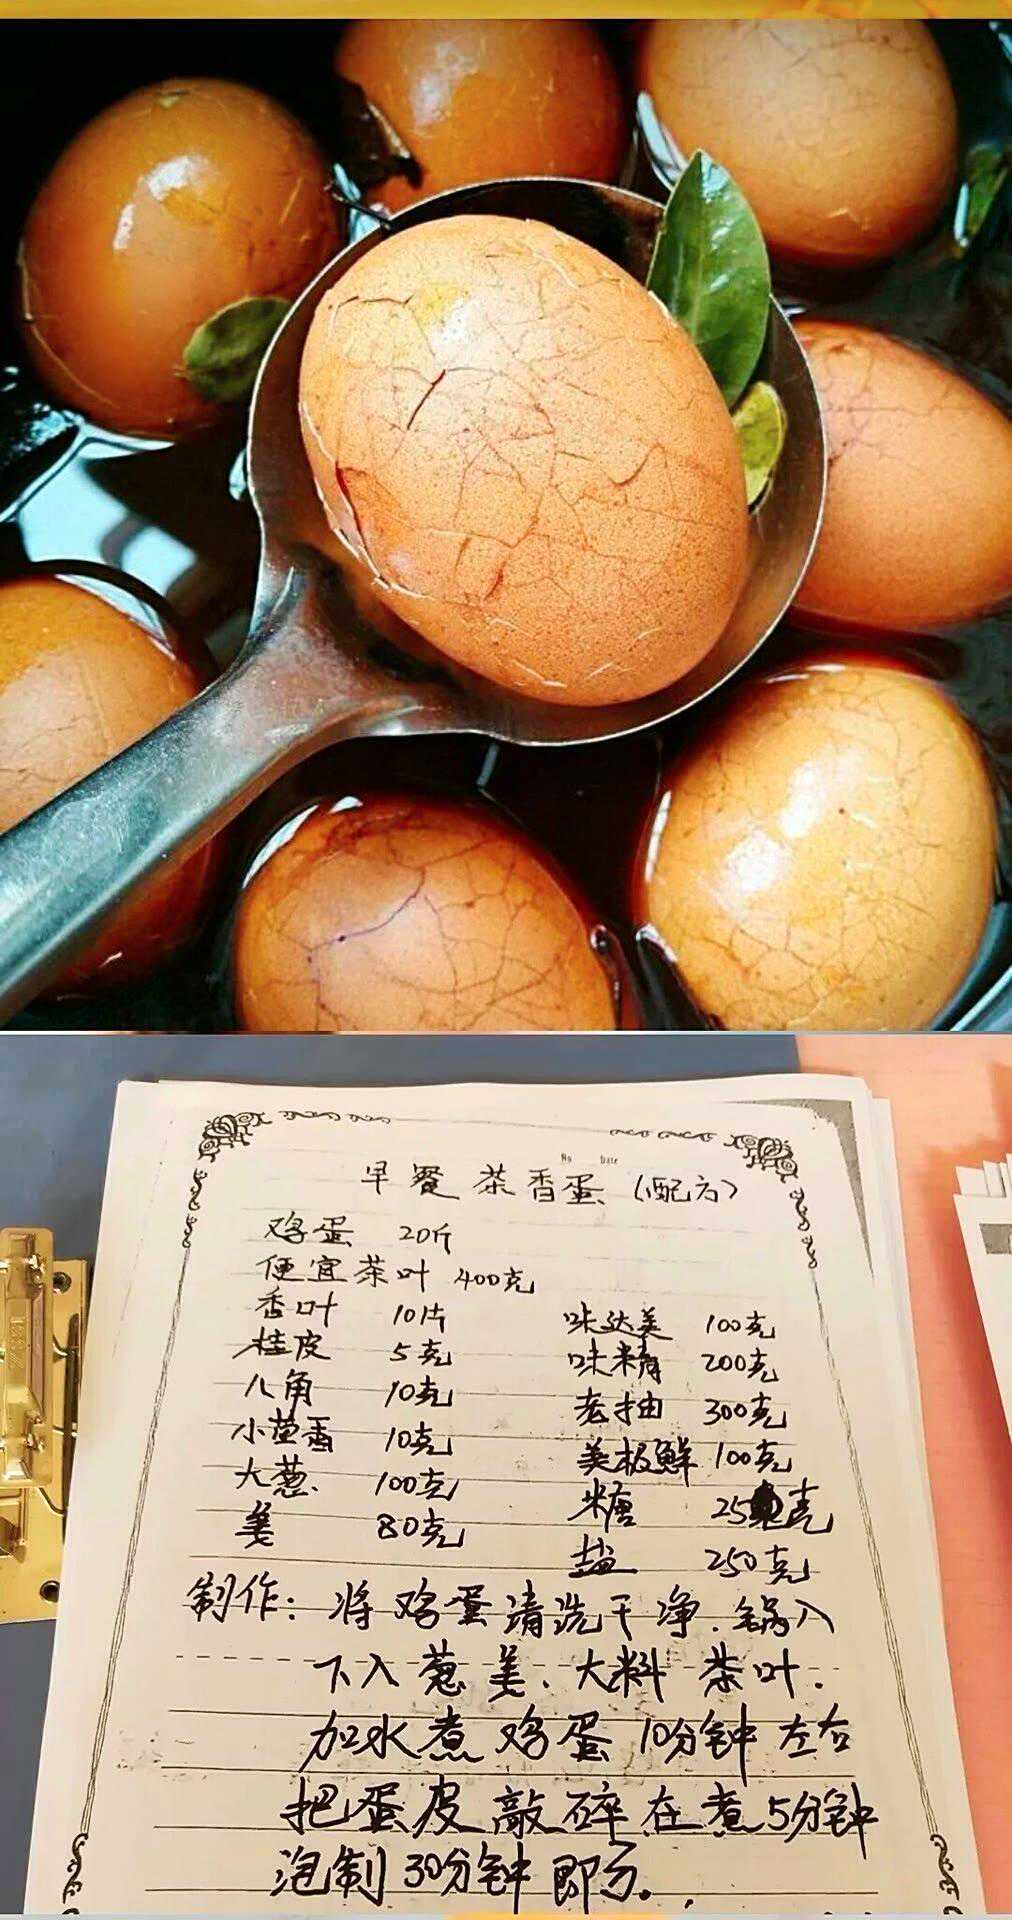 No Date
早餐茶香蛋（配方）
鸡蛋 20斤
便宜茶叶 400克
香叶 10片
桂皮 5克
八角 10克
小茴香 10克
大葱. 100克
姜 80克
味达美 100克
味精 200克
老抽 300克
美极鲜 100克
糖 25克
盐 250克
制作：将鸡蛋清洗干净.锅入
下入葱姜、大料 茶叶.
加水煮鸡蛋10分钟左右
把蛋皮敲碎在煮5分钟
泡制30分钟即可.